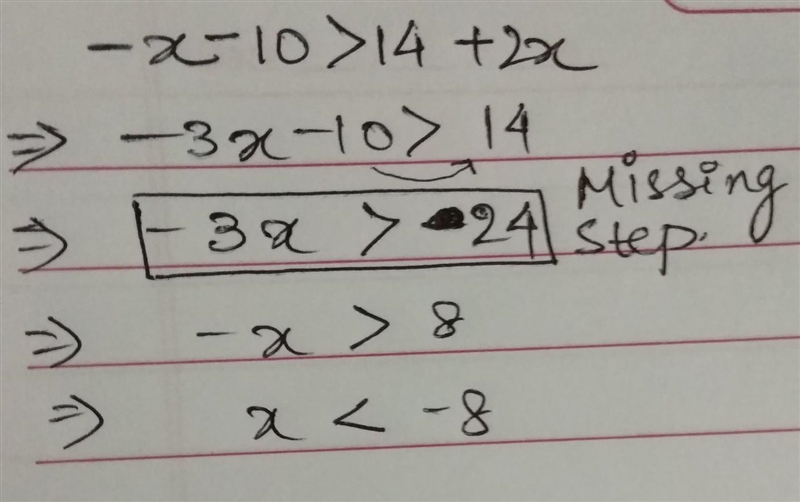 -x-10>14+2x
⇒ -3x-10> 14
⇒ -3x > 24 Missing Step.
⇒ -x > 8
⇒ x < -8